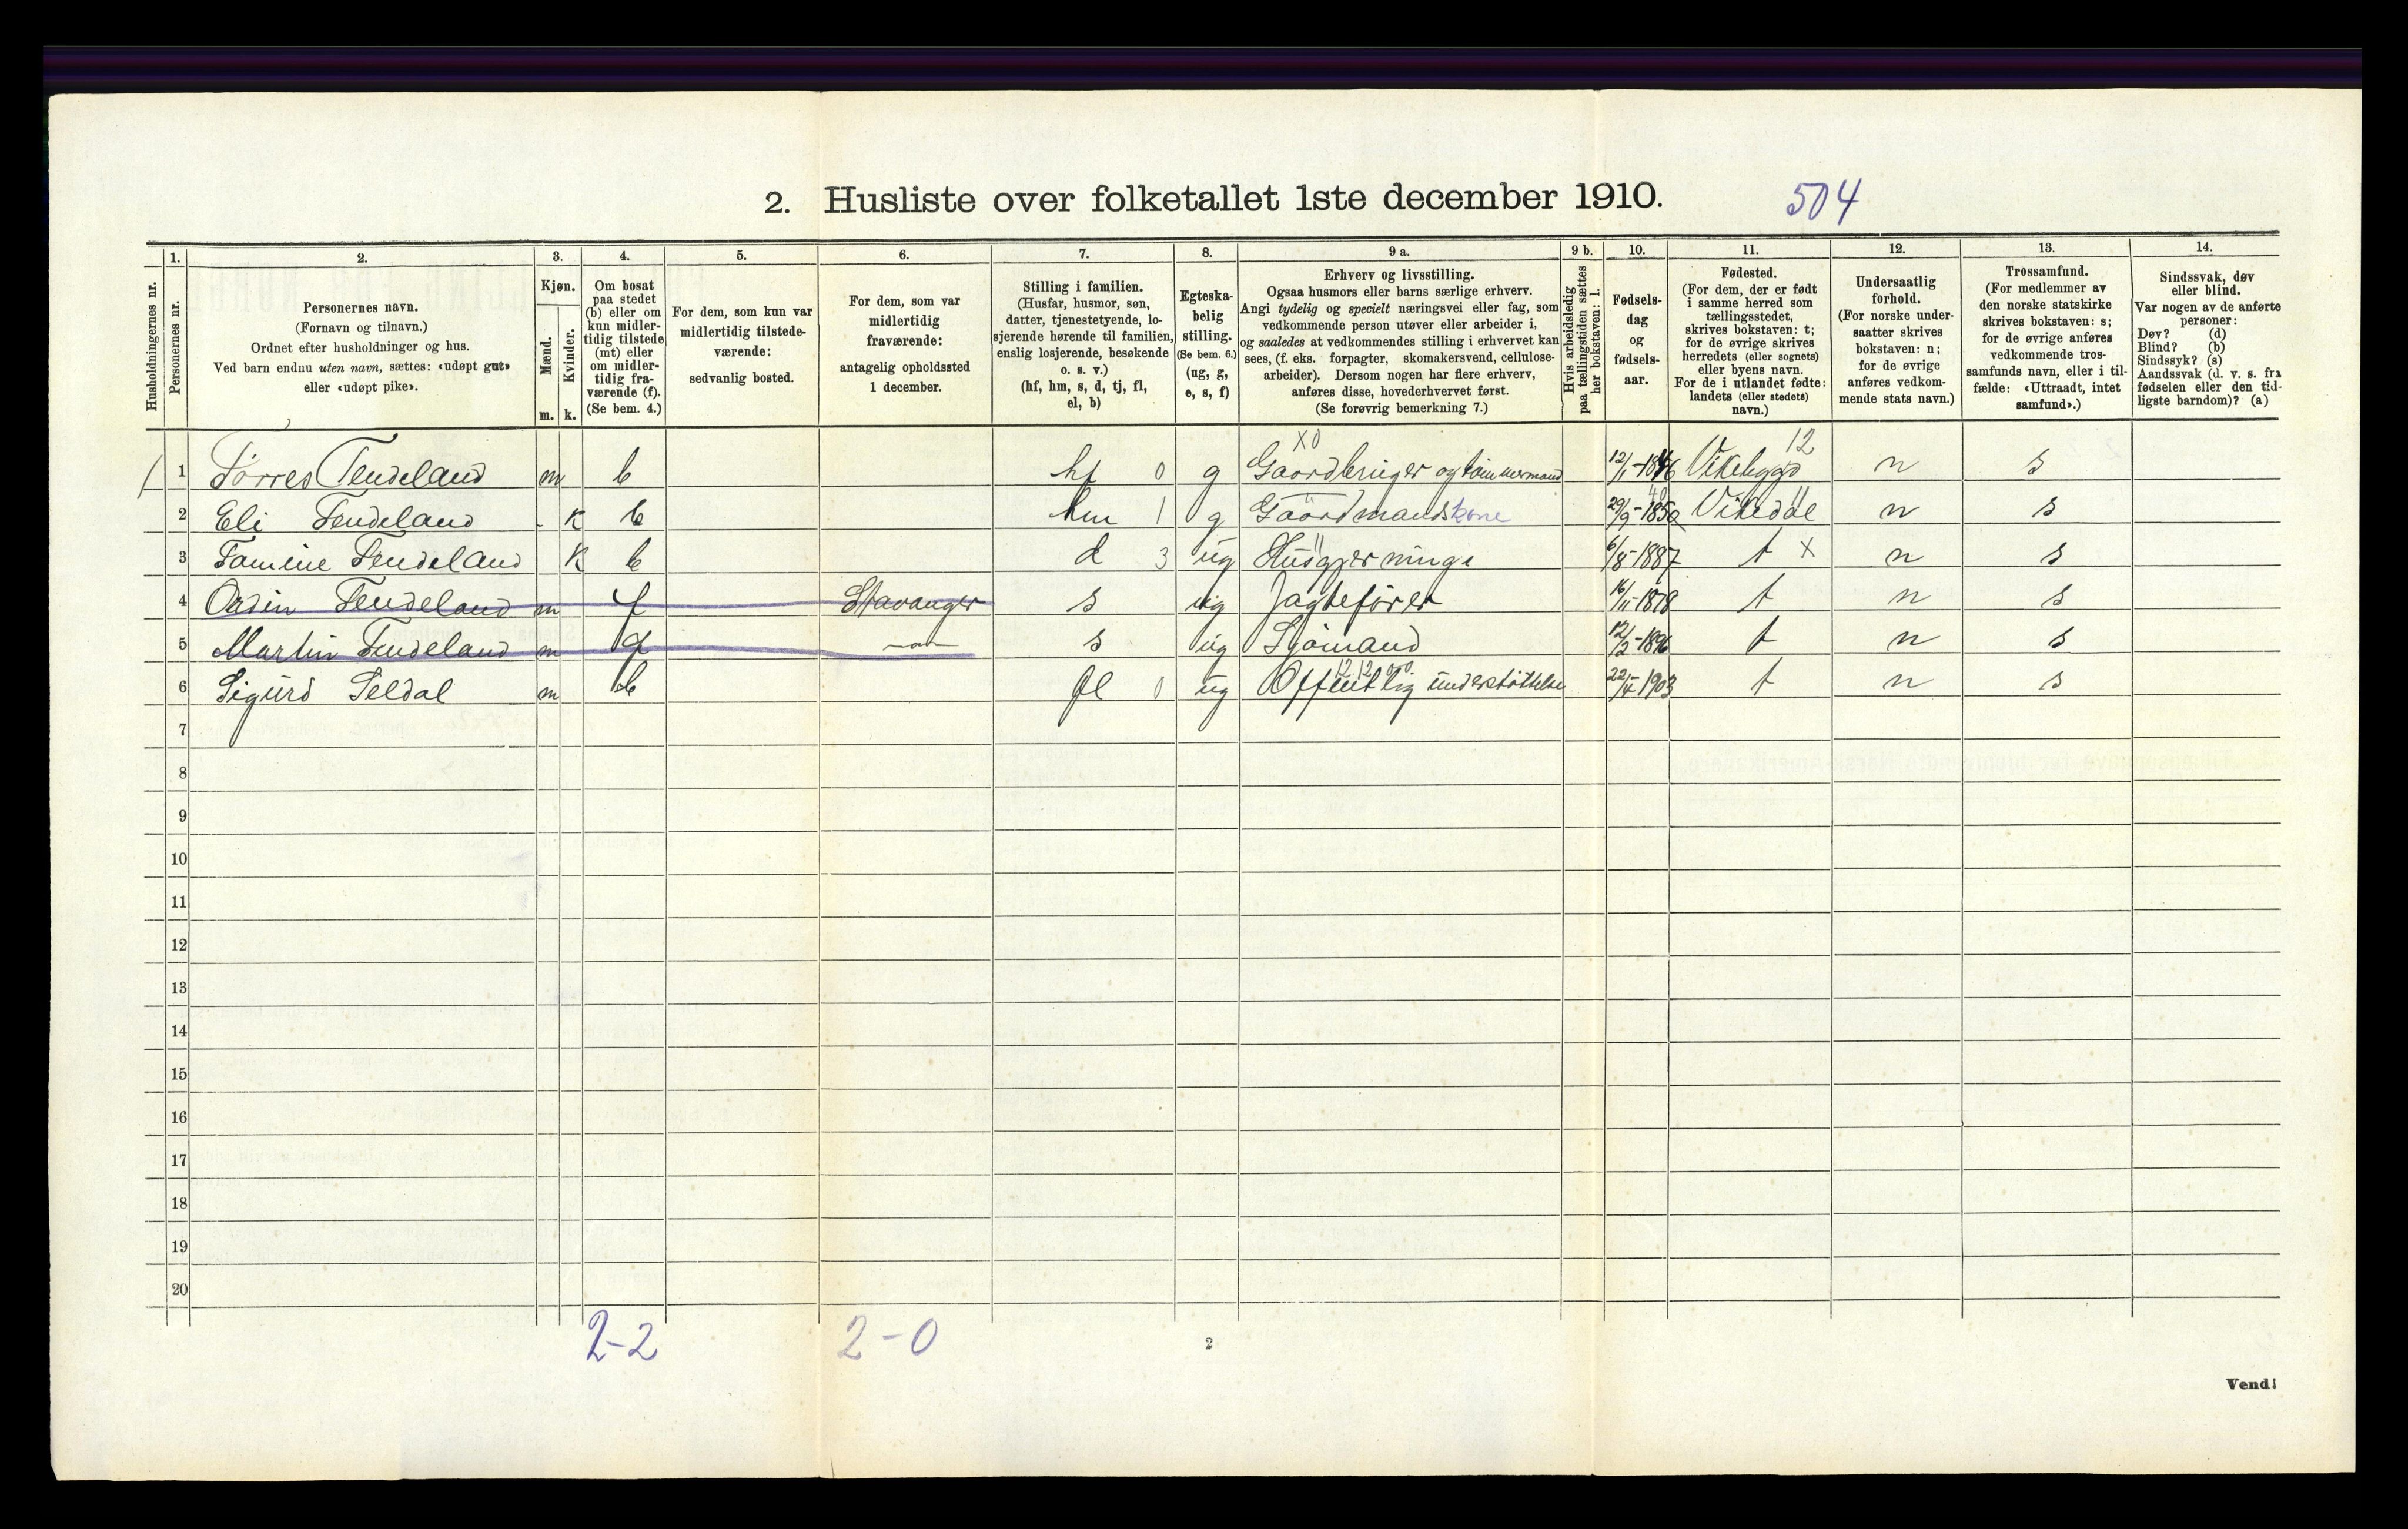 2. Husliste over folketallet 1ste december 1910. 504
1. 2. 3. 4. 5. 6. 7. 8. 9 a. 9 b. 10. 11. 12. 13. 14.
Husholdningernes nr.
Personernes nr.
Personernes navn.
(Fornavn og tilnavn.)
Ordnet efter husholdninger og hus.
Ved barn endnu uten navn, sættes: «udøpt gut»
eller «udøpt pike».
Kjøn.
Mænd.
Kvinder.
m. k.
Om bosat
paa stedet
(b) eller om
kun midler-
tidig tilstede
(mt) eller
om midler-
tidig fra-
værende (f).
(Se bem. 4.)
For dem, som kun var
midlertidig tilstede-
værende:
sedvanlig bosted.
For dem, som var
midlertidig
fraværende:
antagelig opholdssted
1 december.
Stilling i familien.
(Husfar, husmor, søn,
datter, tjenestetyende, lo-
sjerende hørende til familien,
enslig losjerende, besøkende
o. s. v.)
(hf, hm, s, d, tj, fl,
el, b)
Egteska-
belig
stilling.
(Se bem. 6.)
(ug, g,
e, s, f)
Erhverv og livsstilling.
Ogsaa husmors eller barns særlige erhverv.
Angi tydelig og specielt næringsvei eller fag, som
vedkommende person utøver eller arbeider i,
og saaledes at vedkommendes stilling i erhvervet kan
sees, (f. eks. forpagter, skomakersvend, cellulose-
arbeider). Dersom nogen har flere erhverv,
anføres disse, hovederhvervet først.
(Se forøvrig bemerkning 7.)
Hvis arbeidsledig
paa tællingstiden sættes
her bokstaven: l.
Fødsels-
dag
og
fødsels-
aar.
Fødested.
(For dem, der er født
i samme herred som
tællingsstedet,
skrives bokstaven: t;
for de øvrige skrives
herredets (eller sognets)
eller byens navn.
For de i utlandet fødte:
landets (eller stedets)
navn.)
Undersaatlig
forhold.
(For norske under-
saatter skrives
bokstaven: n;
for de øvrige
anføres vedkom-
mende stats navn.)
Trossamfund.
(For medlemmer av
den norske statskirke
skrives bokstaven: s;
for de øvrige anføres
vedkommende tros-
samfunds navn, eller i til-
fælde: «Uttraadt, intet
samfund».)
Sindssvak, døv
eller blind.
Var nogen av de anførte
personer:
Døv? (d)
Blind? (b)
Sindssyk? (s)
Aandssvak (d. v. s. fra
fødselen eller den tid-
ligste barndom)? (a)
X0 12
1 Tørres Tendeland m b hf 0 g Gaardbruger og tømmermand 12/1-1846 Vikebygd n s
40 11
2 Eli Tendeland - k b hm 1 g Gaardmandskone 29/9-1850 Vikedal n s
3 Tomine Tendeland k b d 3 ug Husgjerninge 6/8-1887 t X n s
4 Ordin Tendeland m f Stavanger s ug Jagtefører 16/11-1878 t n s
5 Martin Tendeland m f s ug Sjømand 12/2-1896 t n s
6 Sigurd Seldal m b fl 0 ug Offentlig understøttelse 22/4-1903 t n s
7
8
9
10
11
12
13
14
15
16
17
18
19
20
2-2 2-0
2
Vend!